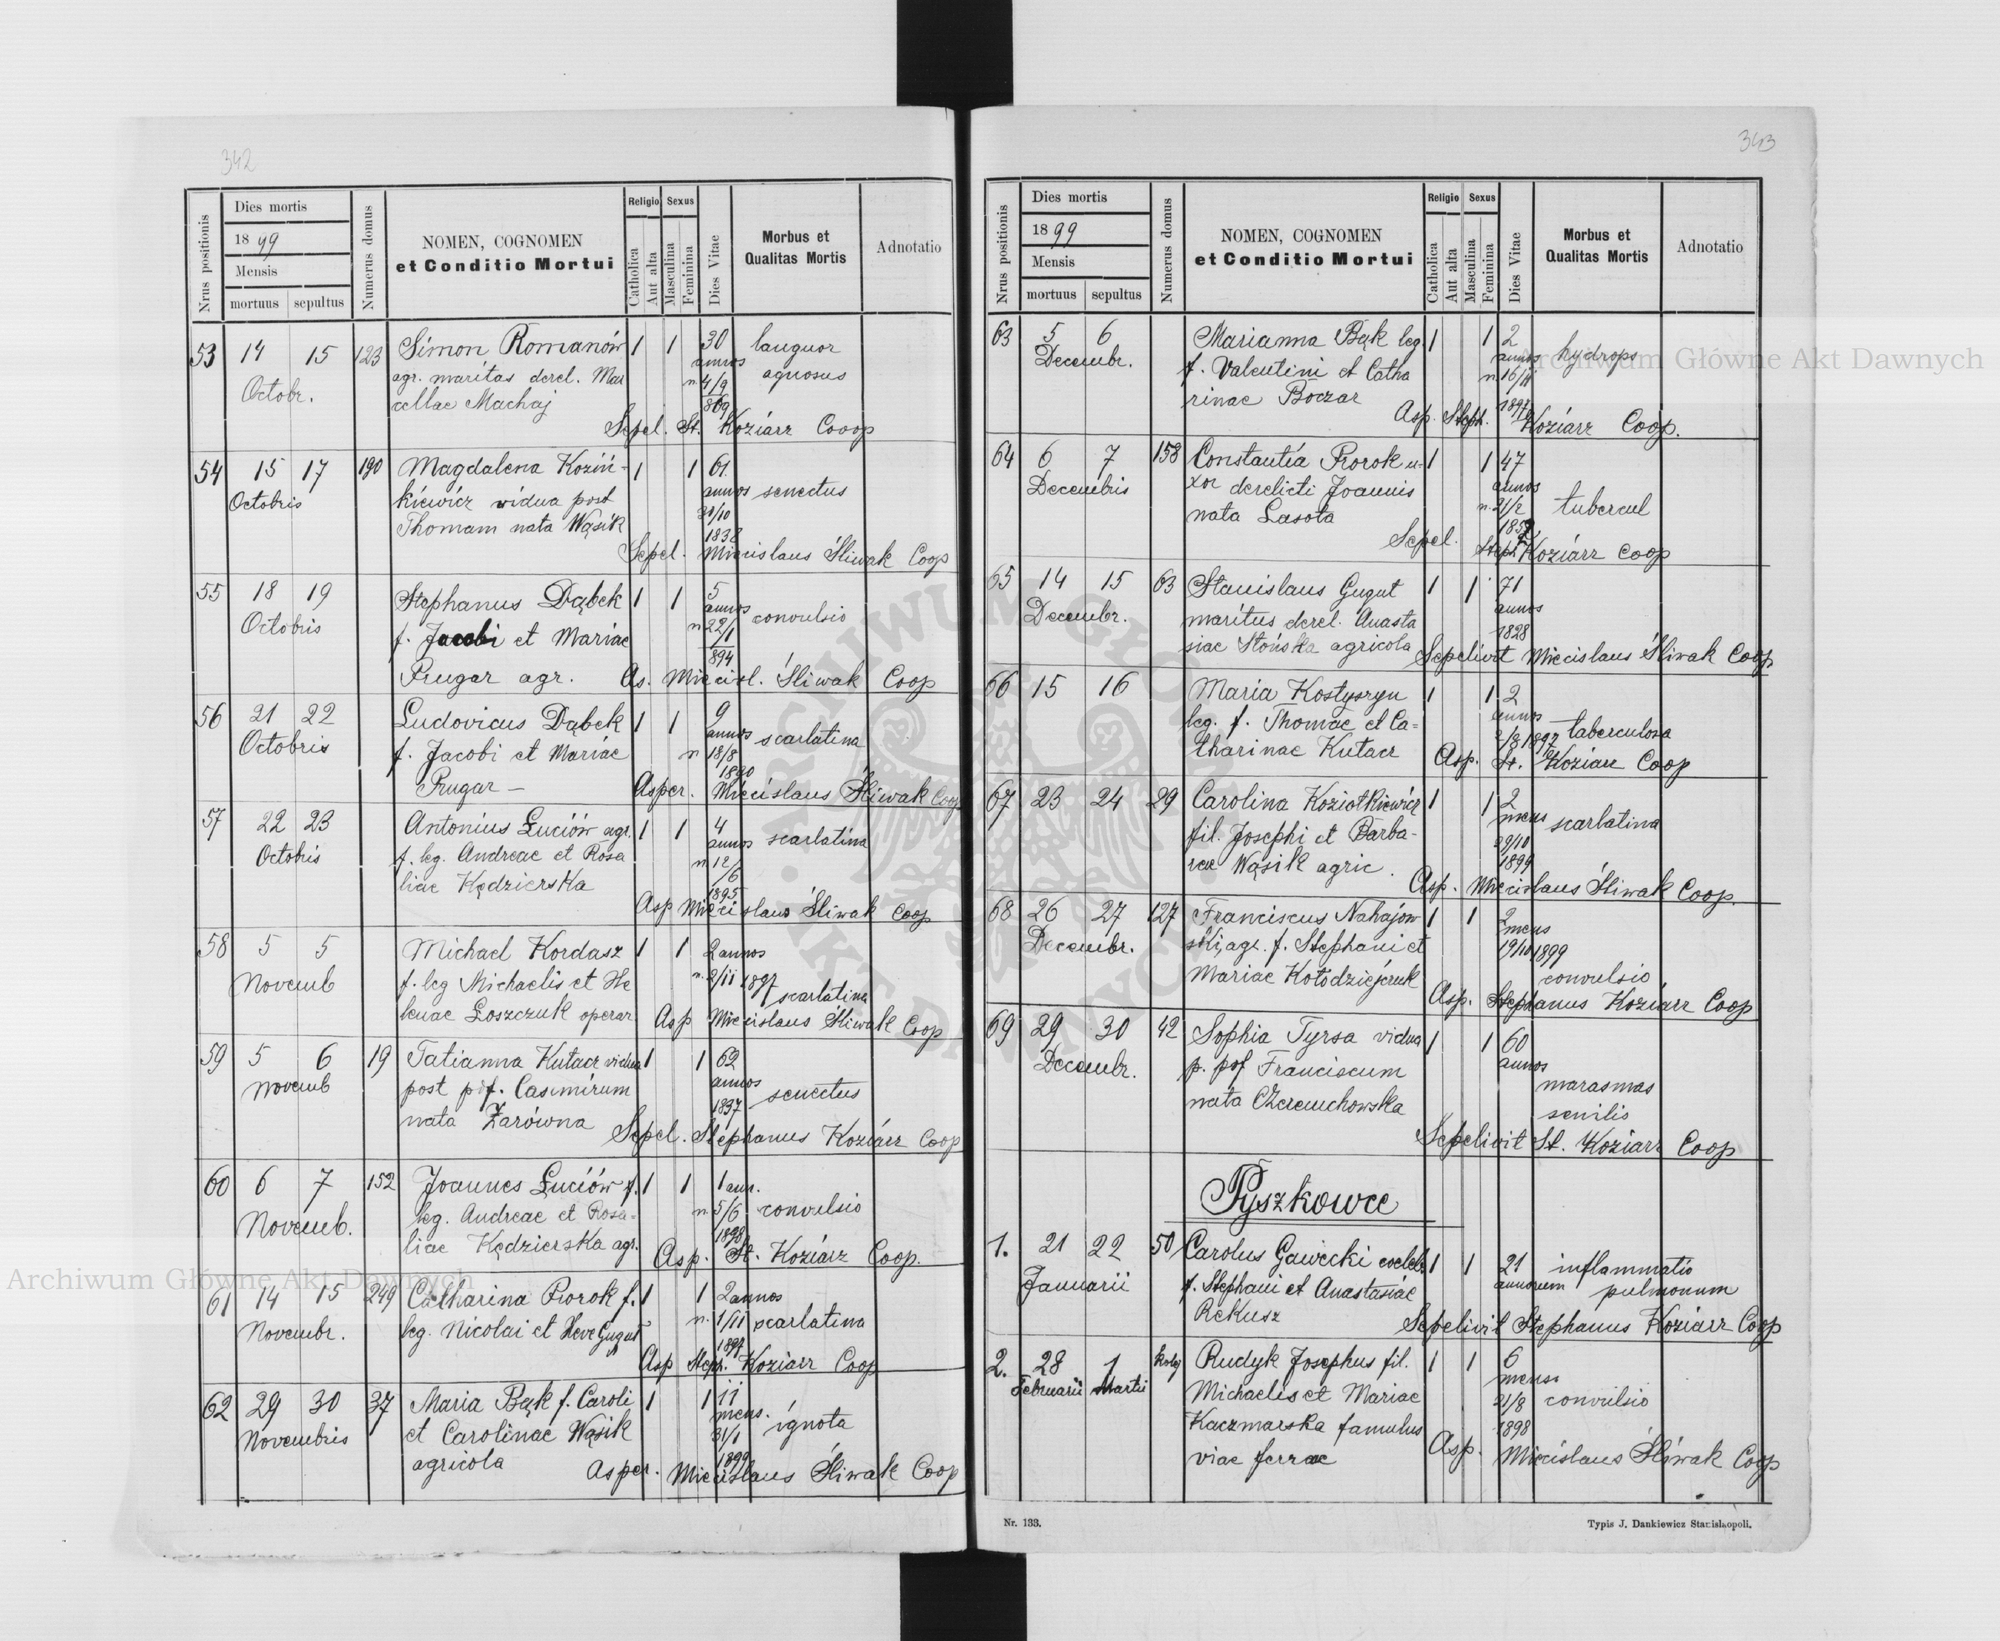 342
Nrus positionis
Dies mortis
1899
Mensis
mortuus sepultus
Numerus domus
NOMEN, COGNOMEN
et Conditio Mortui
Religio
Catholica
Aut alta
Sexus
Masculina
Feminina
Dies Vitae
Morbus et
Qualitas Mortis
Adnotatio
53 14 15 123 Simon Romanów 1 1 30 languor
Octobr. agr. maritus derel. Mar annos aquosus
cellae Machaj n. 4/9
869
Sepel. St. Koziarz Cooop
54 15 17 190 Magdalena Koziń- 1 1 61
Octobris kiewicz vidua post annos senectus
Thomam nata Wąsik 20/10
1838
Sepel. Miecislaus Śliwak Coop
55 18 19 Stephanus Dąbek 1 1 5
Octobris f. Jacobi et Mariae annos convulsio
n 22/1
894
Prugar agr. As. Miecisl. Śliwak Coop
56 21 22 Ludovicus Dąbek 1 1 9
Octobris f. Jacobi et Mariae annos scarlatina
n 18/8
1890
Prugar — Asper. Miecislaus Śliwak Coop
57 22 23 Antonius Łuciów agr. 1 1 4
Octobris f. leg. Andreae et Rosa annos scarlatina
liae Kędzierska n. 12/6
1895
Asp Miecislaus Śliwak Coop
58 5 5 Michael Kordasz 1 1 2 annos
Novemb f. leg Michaelis et He n. 2/11 1897
lenae Łoszczuk operar scarlatina
Asp Miecislaus Śliwak Coop
59 5 6 19 Tatianna Kutacz vidua 1 1 62
Novemb post pif. Casimirum annos
nata Żarówna 1837 senectus
Sepel. Stephanus Koziarz Coop
60 6 7 152 Joannes Łuciów f. 1 1 1 ann.
Novemb. leg. Andreae et Rosa- n. 5/6 convulsio
liae Kędzierska agr. 1898
Asp. St. Koziarz Coop.
61 14 15 249 Catharina Prorok f. 1 1 2 annos
Novembr. leg. Nicolai et Heve Gugut n. 1/11 scarlatina
1897
Asp Steph. Koziarz Coop
62 29 30 37 Maria Bąk f. Caroli 1 1 11
Novembris et Carolinae Wąsik mens. ignota
agricola 31/1
1899
Asper. Miecislaus Śliwak Coop
343
Nrus positionis
Dies mortis
1899
Mensis
mortuus sepultus
Numerus domus
NOMEN, COGNOMEN
et Conditio Mortui
Religio
Catholica
Aut alta
Sexus
Masculina
Feminina
Dies Vitae
Morbus et
Qualitas Mortis
Adnotatio
63 5 6 Marianna Bąk leg. 1 1 2
Decembr. f. Valentini et Catha annos hydrops
rinae Boczar n. 16/11
1897
Asp. Steph. Koziarz Coop.
64 6 7 158 Constantia Prorok u- 1 1 47
Decembris xor derelicti Joannis annos
nata Lasota n. 21/2 tubercul
1852
Sepel. Steph. Koziarz Coop
65 14 15 63 Stanislaus Gugut 1 1 71
Decembr. maritus derel. Anasta annos
siae Słońska agricola 1828
Sepelivit Miecislaus Śliwak Coop
66 15 16 Maria Kostyszyn 1 1 2
leg. f. Thomae et Ca= annos tuberculosa
tharinae Kutacz 2/8 1897
Asp. St. Koziarz Coop
67 23 24 29 Carolina Koziołkiewicz 1 1 2
fil. Josephi et Barba- mens scarlatina
rae Wąsik agric. 29/10
1899
Asp. Miecislaus Śliwak Coop.
68 26 27 127 Franciscus Nahajow 1 1 2 mens
Decembr. ski, agr. f. Stephani et 19/10 1899
Mariae Kołodziejczuk convulsio
Asp. Stephanus Koziarz Coop
69 29 30 42 Sophia Tyrsa vidua 1 1 60
Decembr. p. pof Franciscum annos
nata Czeremchowska marasmas
senilis
Sepelivit St. Koziarz Coop
Pyszkowce
1. 21 22 50 Carolus Gawecki coeleb. 1 1 21 inflammatio
Januarii f. Stephani et Anastasiae annorum pulmonum
Rekusz Sepelivit Stephanus Koziarz Coop
2. 28 1 kolej Rudyk Josephus fil. 1 1 6
Februarii Martii Michaelis et Mariae mens
Kaczmarska famulus 21/8 convulsio
viae ferrae 1898
Asp. Miecislaus Śliwak Coop
Nr. 133.
Typis J. Dankiewicz Stanislaopoli.
Archiwum Główne Akt Dawnych
Archiwum Główne Akt Dawnych
ARCHIWUM GŁÓWNE AKT DAWNYCH